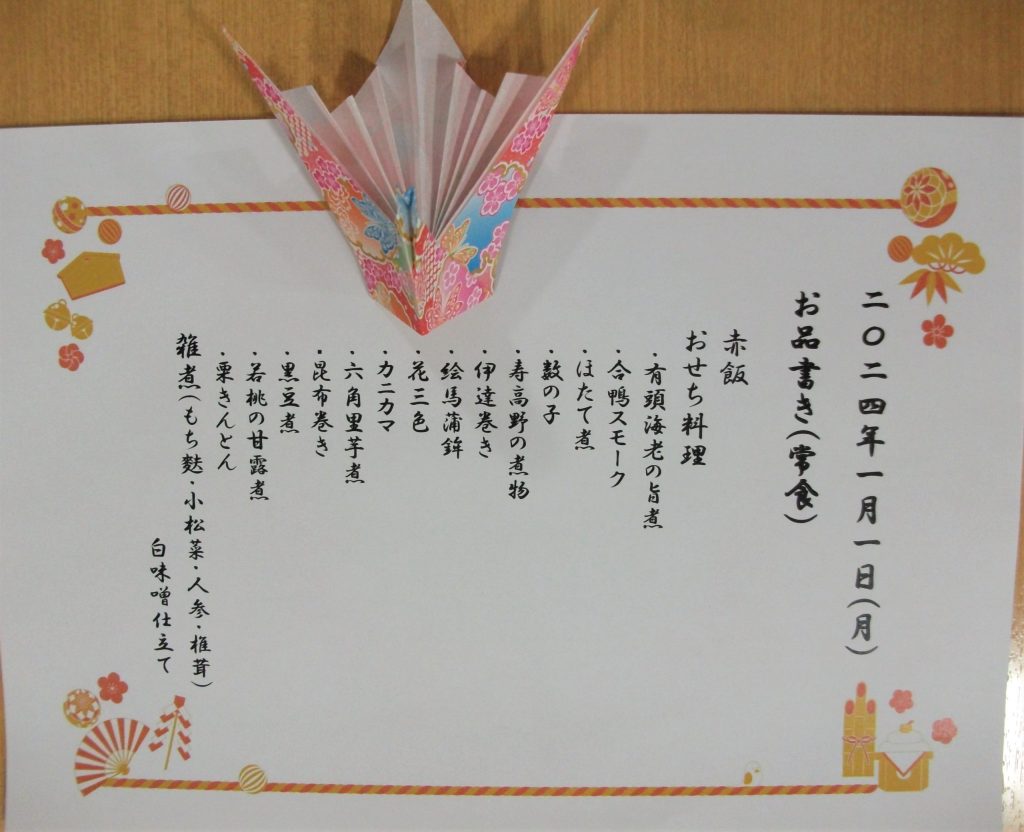 二〇二四年一月一日(月)
お品書き(常食)
赤飯
おせち料理
・有頭海老の旨煮
・合鴨スモーク
・ほたて煮
・数の子
・寿高野の煮物
・伊達巻き
・絵馬蒲鉾
・花三色
・カニカマ
・六角里芋煮
・昆布巻き
・黒豆煮
・若桃の甘露煮
・栗きんとん
雑煮(もち麩・小松菜・人参・椎茸)
白味噌仕立て